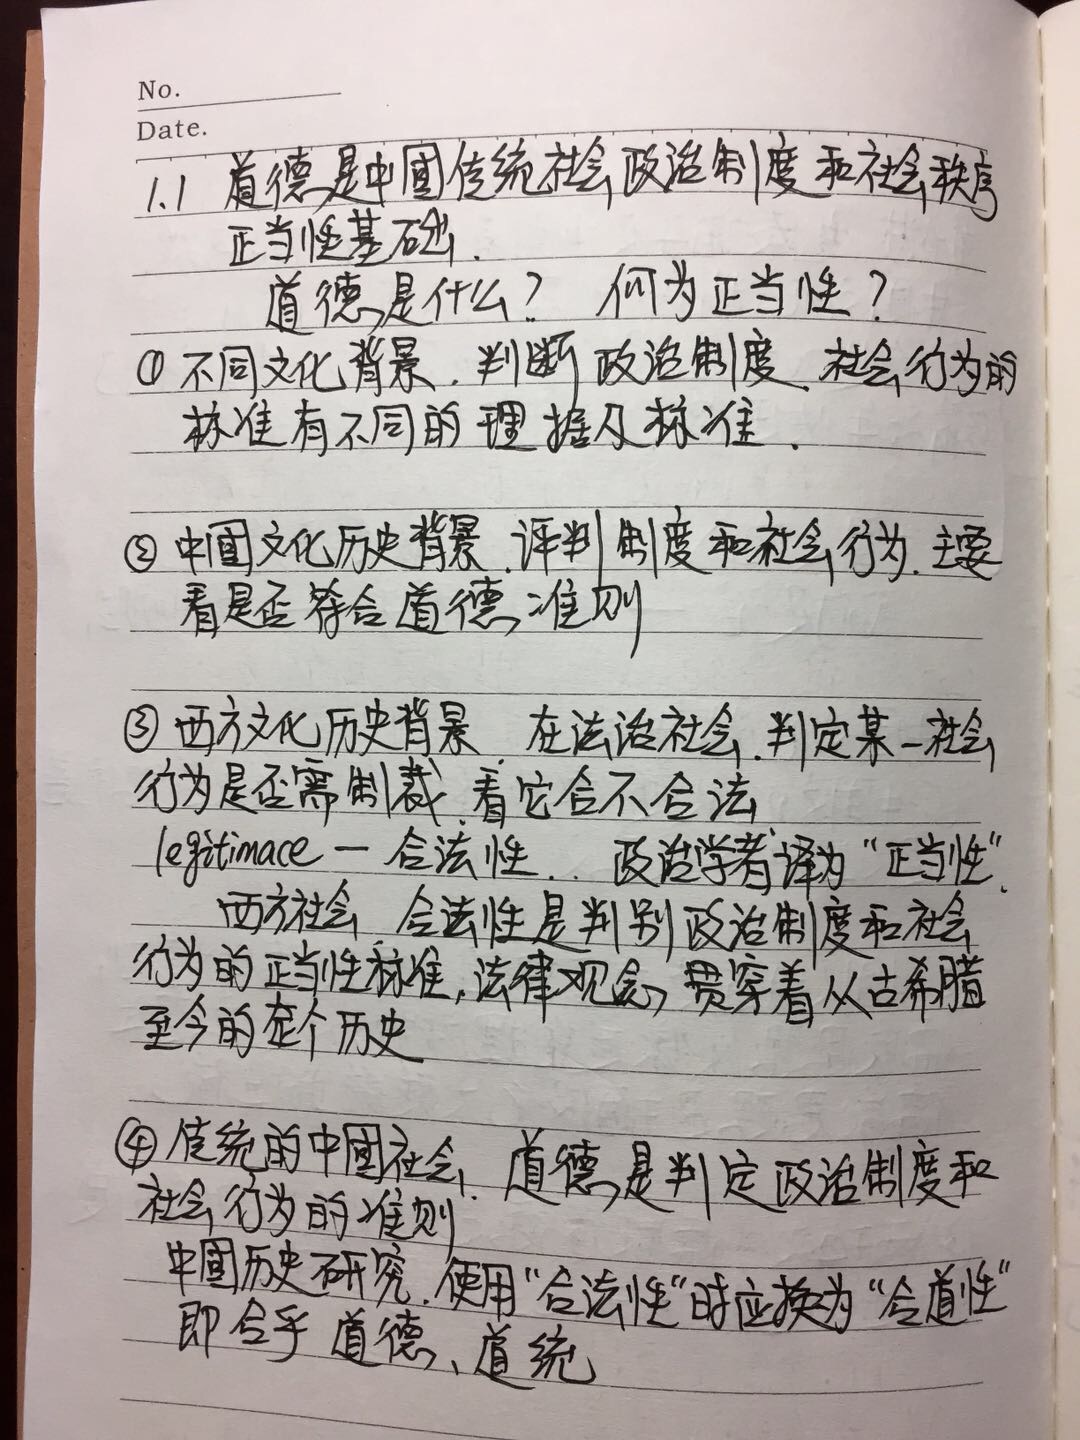 No.
Date.
1.1 道德是中國传统社会政治制度和社会秩序
正当性基础.
道德是什么? 何为正当性?
① 不同文化背景.判断政治制度、社会行为的
标准有不同的理据及标准.
② 中國文化历史背景.评判制度和社会行为.主要
看是否符合道德准则
③ 西方文化历史背景 在法治社会.判定某一社会
行为是否需制裁.看它合不合法
legitimace — 合法性.. 政治学者译为“正当性”.
西方社会 合法性是判别政治制度和社会
行为的正当性标准,法律观念贯穿着从古希腊
至今的整个历史
④ 传统的中國社会. 道德是判定政治制度和
社会行为的准则
中國历史研究.使用“合法性”时应换为“合道性”
即合乎道德、道统